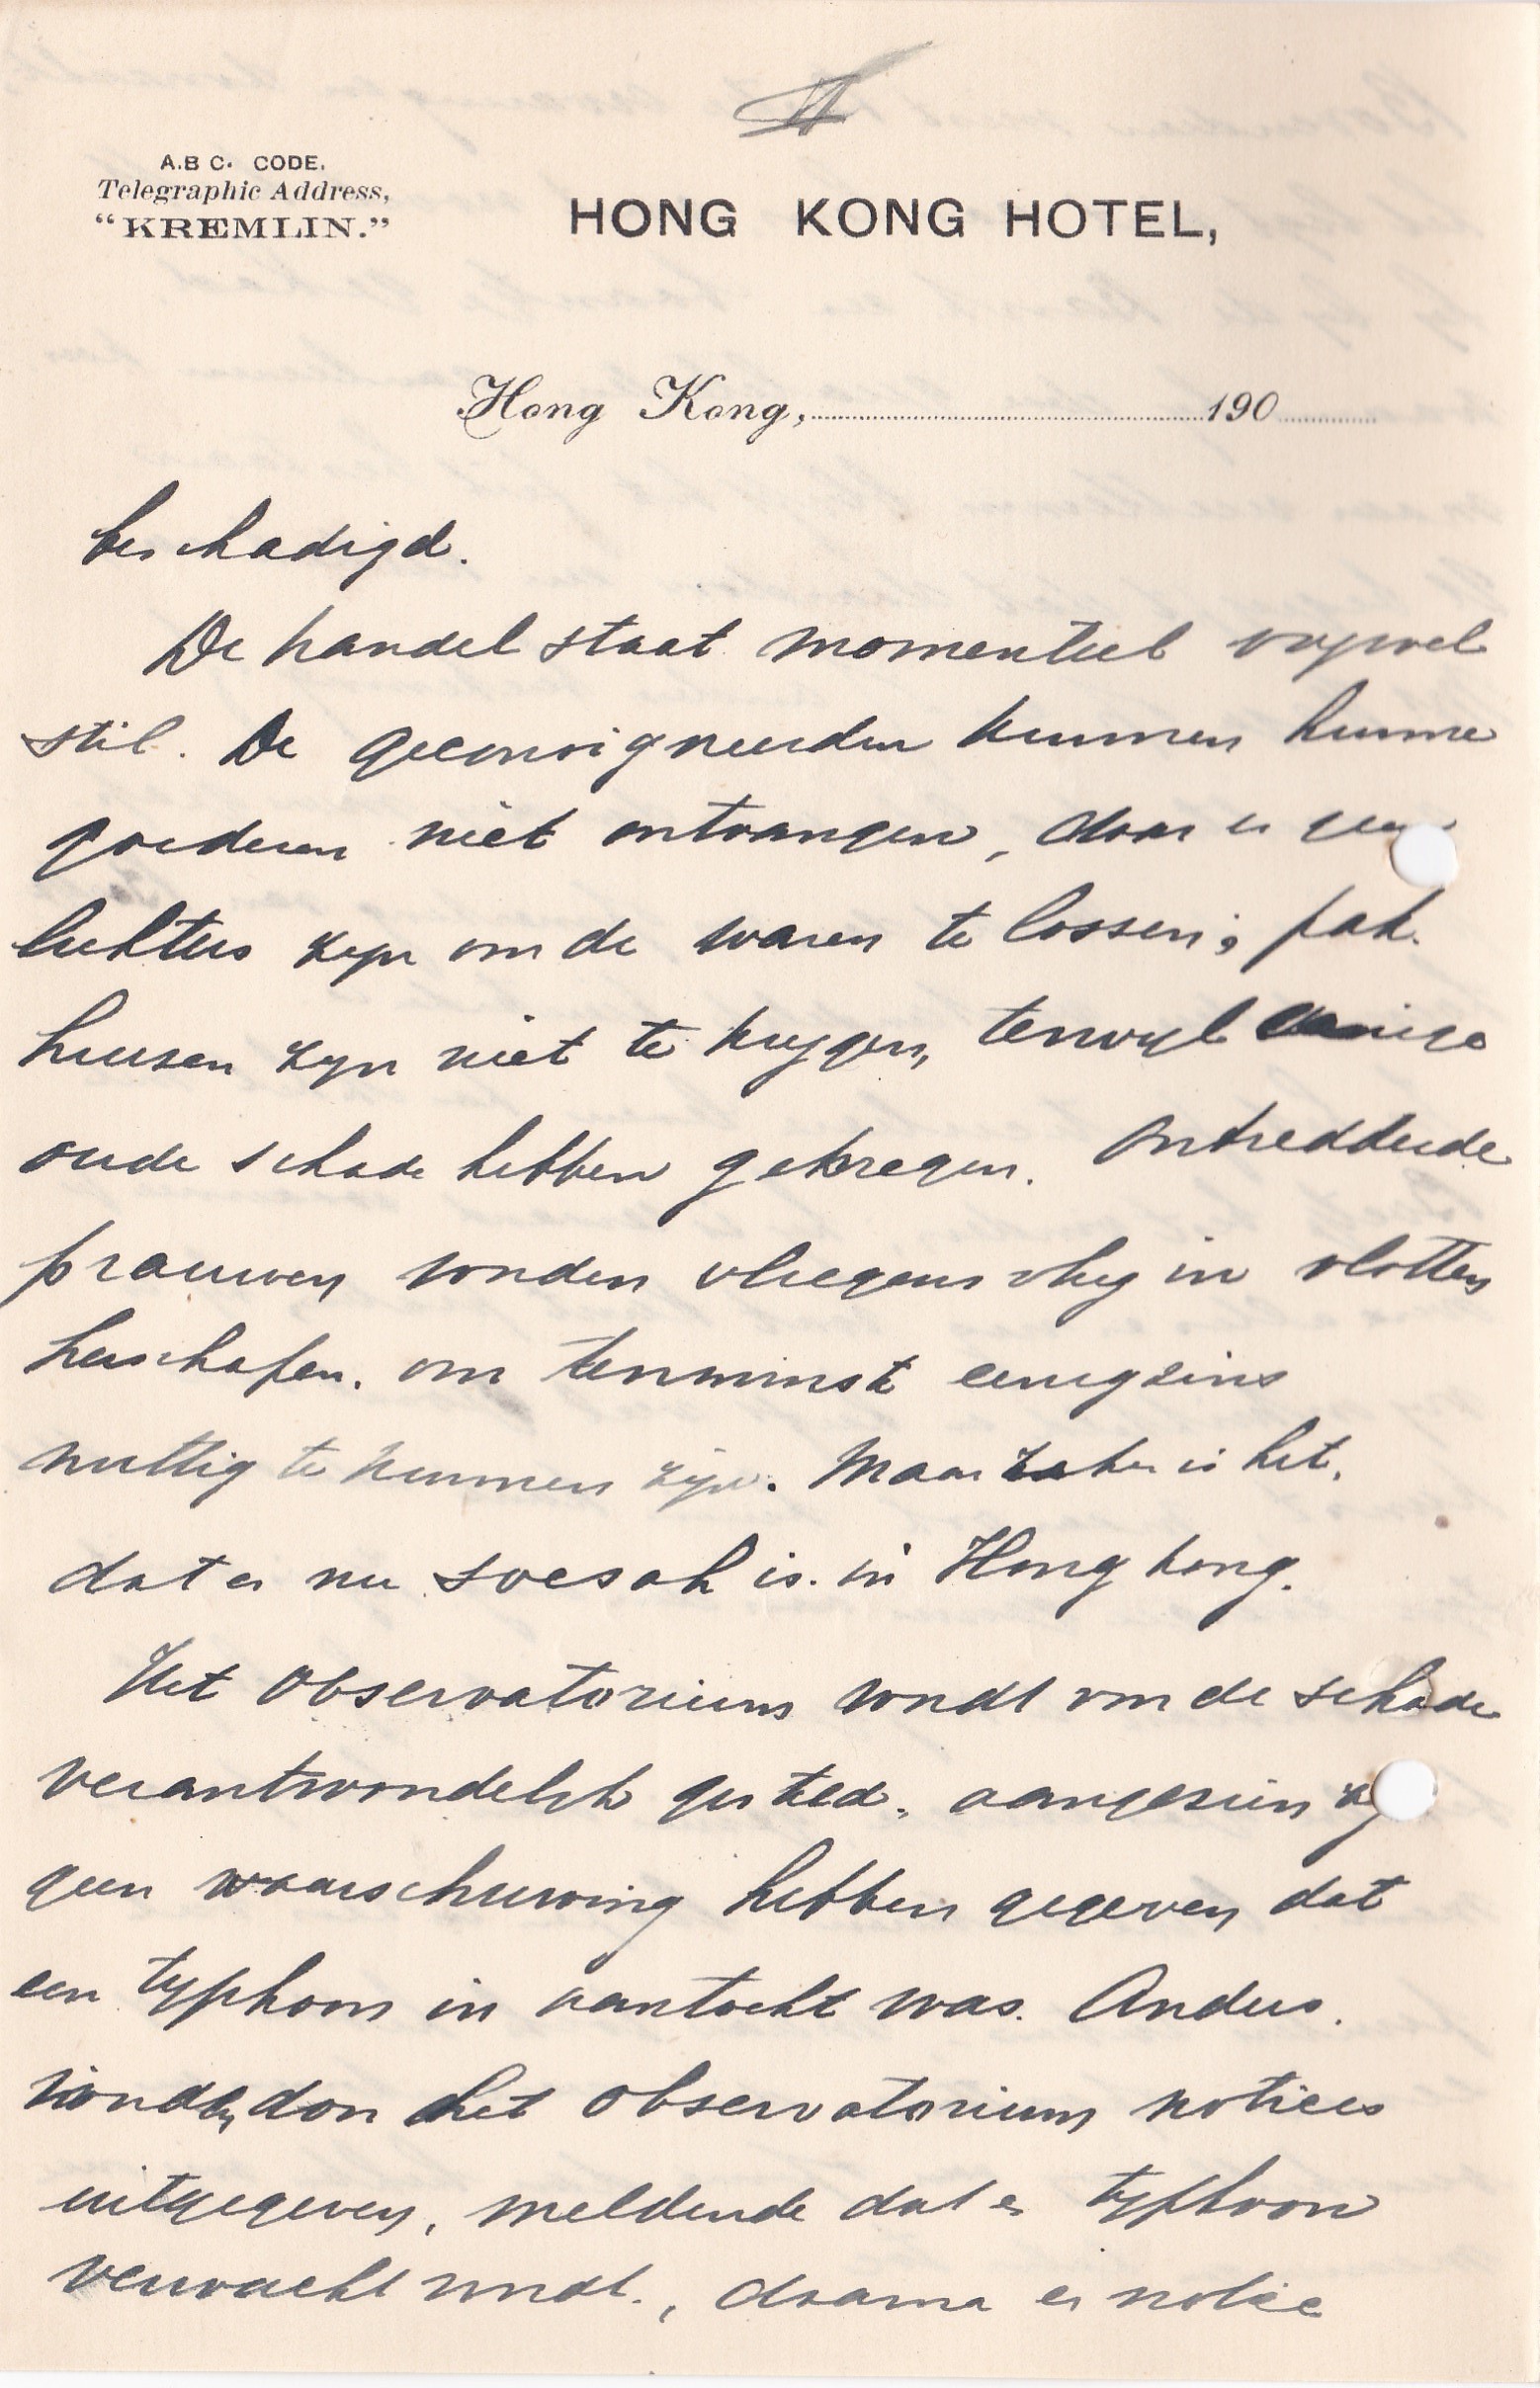 A.B C. CODE.
Telegraphic Address,
"KREMLIN."
HONG KONG HOTEL,
Hong Kong, 190
beschadigd.
De handel staat momenteel vrijwel
stil. De geconsigneerden kunnen hunne
goederen niet ontvangen, daar er geen
lichters zijn om de waren te lossen; pak-
huisen zijn niet te krijgen, terwijl eenige
oude schade hebben gekregen. Ontredderde
prauwen worden vliegensvlug in vlotten
herschapen. om tenminste eenigzins
nuttig te kunnen zijn. Maar zeker is het,
dat er nu soesah is in Hongkong.
Het Observatorium wordt om de schade
verantwoordelijk gesteld, aangezien zij
geen waarschuwing hebben gegeven dat
een typhoon in aantocht was. Anders
worden door het Observatorium notices
uitgegeven, meldende dat er typhoon
verwacht wordt., daarna er notice